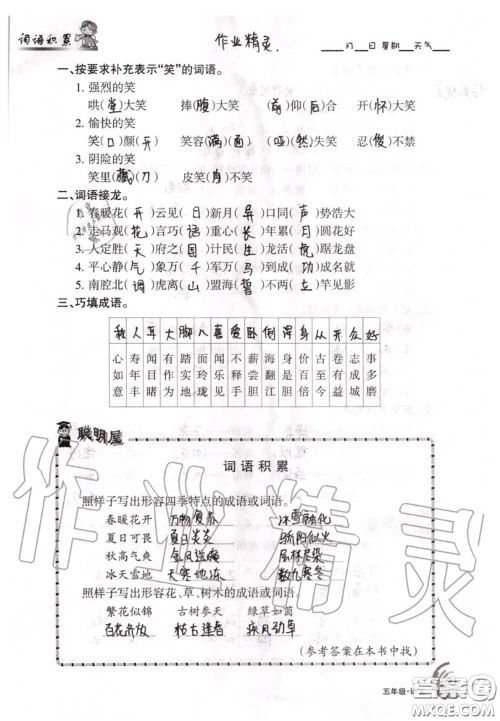 词语积累 作业精灵. ____月__日 星期__天气____
一、按要求补充表示“笑”的词语。
1. 强烈的笑
哄(堂)大笑 捧(腹)大笑 (前)仰(后)合 开(怀)大笑
2. 愉快的笑
笑(口)颜(开) 笑容(满)(面) (哑)(然)失笑 忍(俊)不禁
3. 阴险的笑
笑里(藏)(刀) 皮笑(肉)不笑
二、词语接龙。
1. 春暖花(开)云见(日)新月(异)口同(声)势浩大
2. 走马观(花)言巧(语)重心(长)年累(月)圆花好
3. 人定胜(天)府之(国)计民(生)龙活(虎)踞龙盘
4. 平心静(气)象万(千)军万(马)到成(功)成名就
5. 南腔北(调)虎离(山)盟海(誓)不两(立)竿见影
三、巧填成语。
我 人 耳 大 脚 八 喜 爱 卧 倒 浑 身 从 开 众 好
心 寿 闻 有 踏 面 闻 不 薪 海 身 价 古 卷 志 事
如 年 目 作 实 玲 乐 释 尝 翻 是 百 至 有 成 多
意 丰 睹 为 地 珑 见 手 胆 江 胆 倍 今 益 城 磨
聪明屋
词语积累
照样子写出形容四季特点的成语或词语。
春暖花开 万物复苏 冰雪融化
夏日可畏 夏日炎炎 骄阳似火
秋高气爽 金风送爽 层林尽染
冰天雪地 天寒地冻 数九寒冬
照样子写出形容花、草、树木的成语或词语。
繁花似锦 古树参天 绿草如茵
百花齐放 枯木逢春 疾风劲草
(参考答案在本书中找)
五年级·
作业精灵
答案圈
MXQE.COM